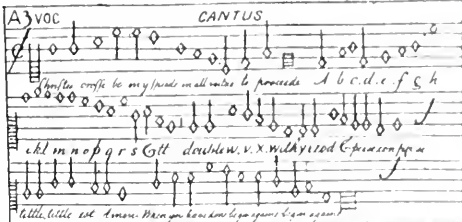 A3 VOC CANTUS
Christes crosse be my speede in all vertue to proceede A b c. d. e. f g h
ikl m n o p q r s tt double w. v. x. with y
tittle. tittle est Amen. When you have done begin againe begin againe